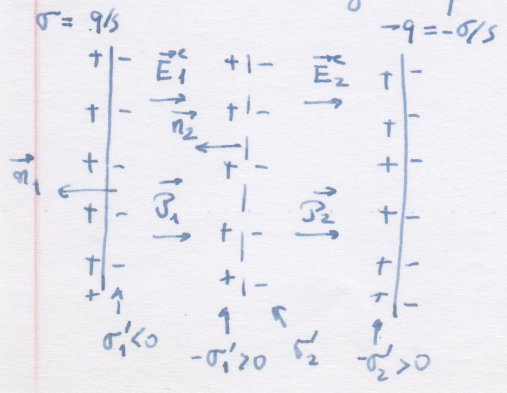 σ = q/s
-q = -σ/s
+ - E₁ + - E₂ + -
+ - n₂ + - + -
n₁ + - + - + -
+ - P₁ + - P₂ + -
+ - + - + -
+
σ₁'<0 -σ₁'>0 σ₂' -σ₂'>0